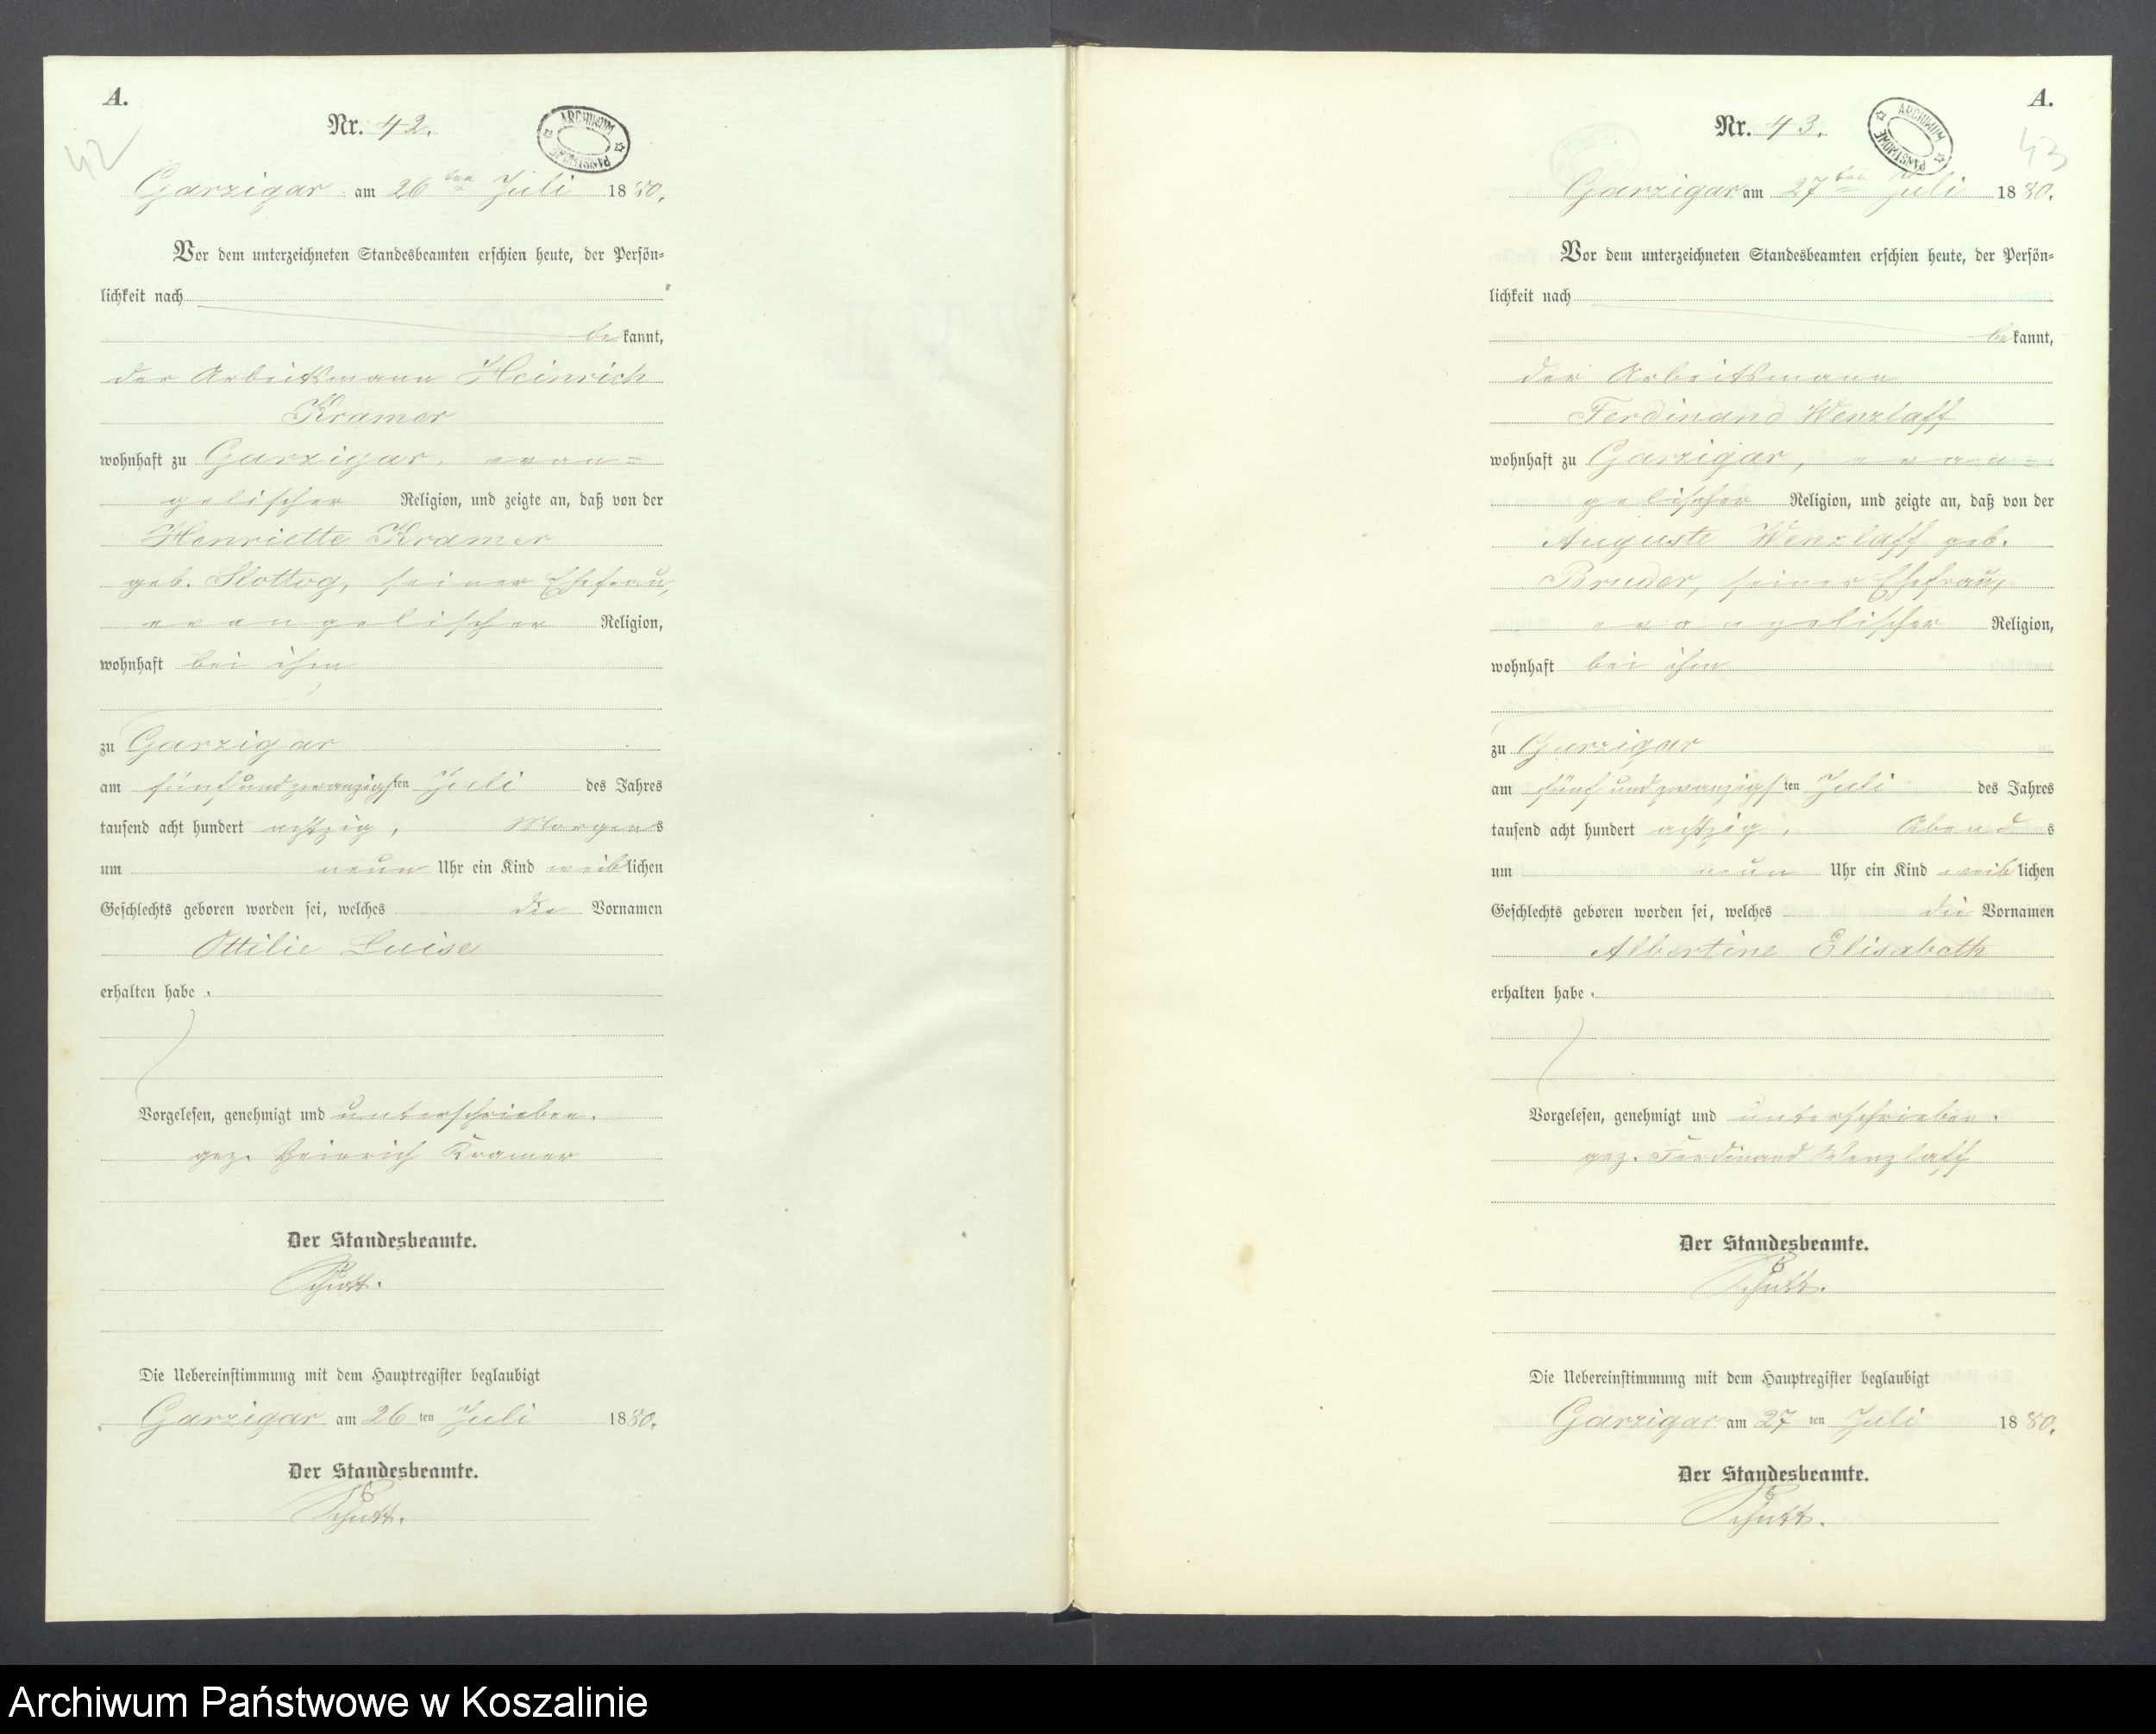 A.
Nr. 42.
42
ARCHIWUM PAŃSTWOWE
Garzigar am 26ten Juli 1880.
Vor dem unterzeichneten Standesbeamten erschien heute, der Persön-
lichkeit nach
bekannt,
der Arbeitsmann Heinrich
Kramer
wohnhaft zu Garzigar, evan=
gelischer Religion, und zeigte an, daß von der
Henriette Kramer
geb. Kottog, seiner Ehefrau,
evangelischer Religion,
wohnhaft bei ihm
zu Garzigar
am fünfundzwanzigsten Juli des Jahres
tausend acht hundert achtzig, Morgens
um neun Uhr ein Kind weiblichen
Geschlechts geboren worden sei, welches die Vornamen
Ottilie Luise
erhalten habe.
Vorgelesen, genehmigt und unterschrieben.
gez. Heinrich Kramer
Der Standesbeamte.
Die Uebereinstimmung mit dem Hauptregister beglaubigt
Garzigar am 26ten Juli 1880.
Der Standesbeamte.
A.
Nr. 43.
43
ARCHIWUM PAŃSTWOWE
Garzigar am 27ten Juli 1880.
Vor dem unterzeichneten Standesbeamten erschien heute, der Persön-
lichkeit nach
bekannt,
der Arbeitsmann
Ferdinand Wenzlaff
wohnhaft zu Garzigar, evan=
gelischer Religion, und zeigte an, daß von der
Auguste Wenzlaff geb.
Bruder, seiner Ehefrau,
evangelischer Religion,
wohnhaft bei ihm
zu Garzigar
am fünfundzwanzigsten Juli des Jahres
tausend acht hundert achtzig, Abends
um neun Uhr ein Kind weiblichen
Geschlechts geboren worden sei, welches die Vornamen
Albertine Elisabeth
erhalten habe.
Vorgelesen, genehmigt und unterschrieben.
gez. Ferdinand Wenzlaff
Der Standesbeamte.
Die Uebereinstimmung mit dem Hauptregister beglaubigt
Garzigar am 27ten Juli 1880.
Der Standesbeamte.
Archiwum Państwowe w Koszalinie